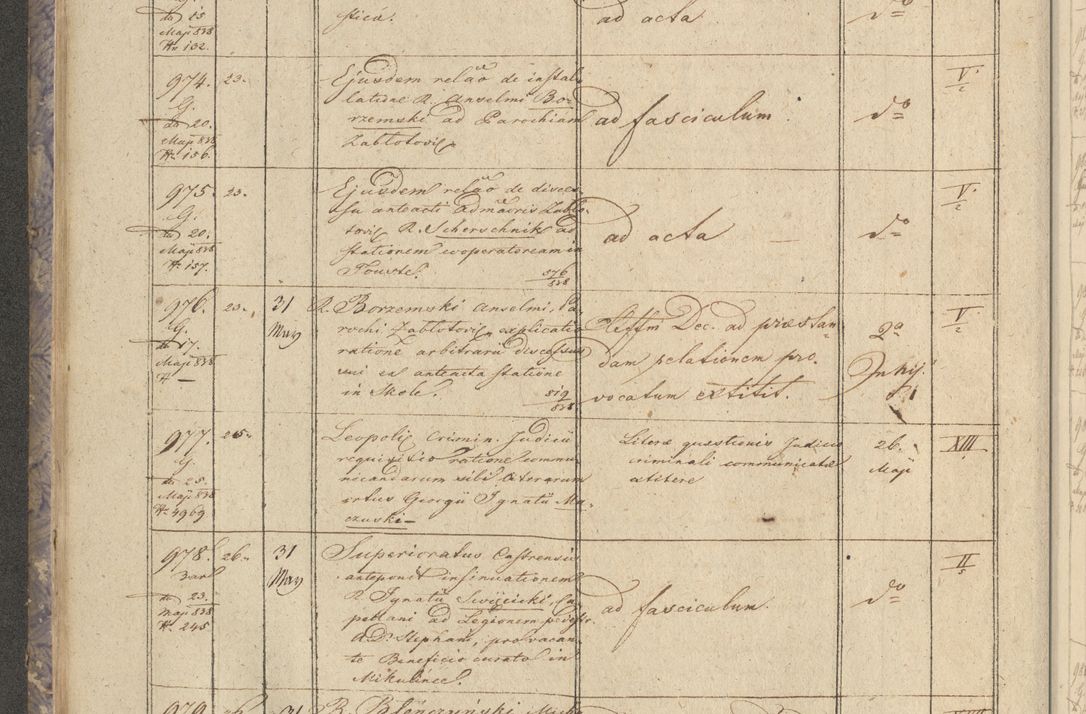 15
Maji 838
N. 132.
stica.
ad acta
do
974.
G.
dto 20.
Maji 838
N. 156.
23.
Ejusdem relaō de instal-
latione R. Anselmi Bo-
rzemski ad Parochiam
Zabłotoviē
ad fasciculum
do
V.
2
975.
G.
dto 20.
Maji 838
N. 157.
23.
Ejusdem relaō de disces-
su anteacti Admāoris Zabło-
toviē R. Scherschnik ad
stationem cooperatoream in
Touste.
576
838
ad acta
do
V.
2
976.
G.
dto 17.
Maji 838
N —
23.
31
May
R. Borzemski Anselmi, Pa-
rochi Zabłotoviē explicatio
ratione arbitrarii discessus
sui ex anteacta statione
in Skole.
519
838
Dec. ad præstan-
dam relationem pro-
vocatum extitit.
2a
V
2
977.
G.
dto 25.
Maji 838
N. 4969
25.
Leopoliē Crimin. Judicii
requisitio ratione commu-
nicandarum sibi literarum
ortus Georgii Ignatii Ma-
czuski—
Literæ quæstionis Judicio
criminali communicatæ
extitere
26.
Maji
XIII
978.
dto 23.
Maji 838
N. 245
26.
31
May
Superioratus Castrensis
anteponit insinuationem
R. Ignatii Swięcicki, Ca-
pellani ad Legionem pedestr.
A. D. Stephani, pro vacan-
te Beneficio curato in
Mikulińce.
ad fasciculum.
do
II
5
979
31
R.